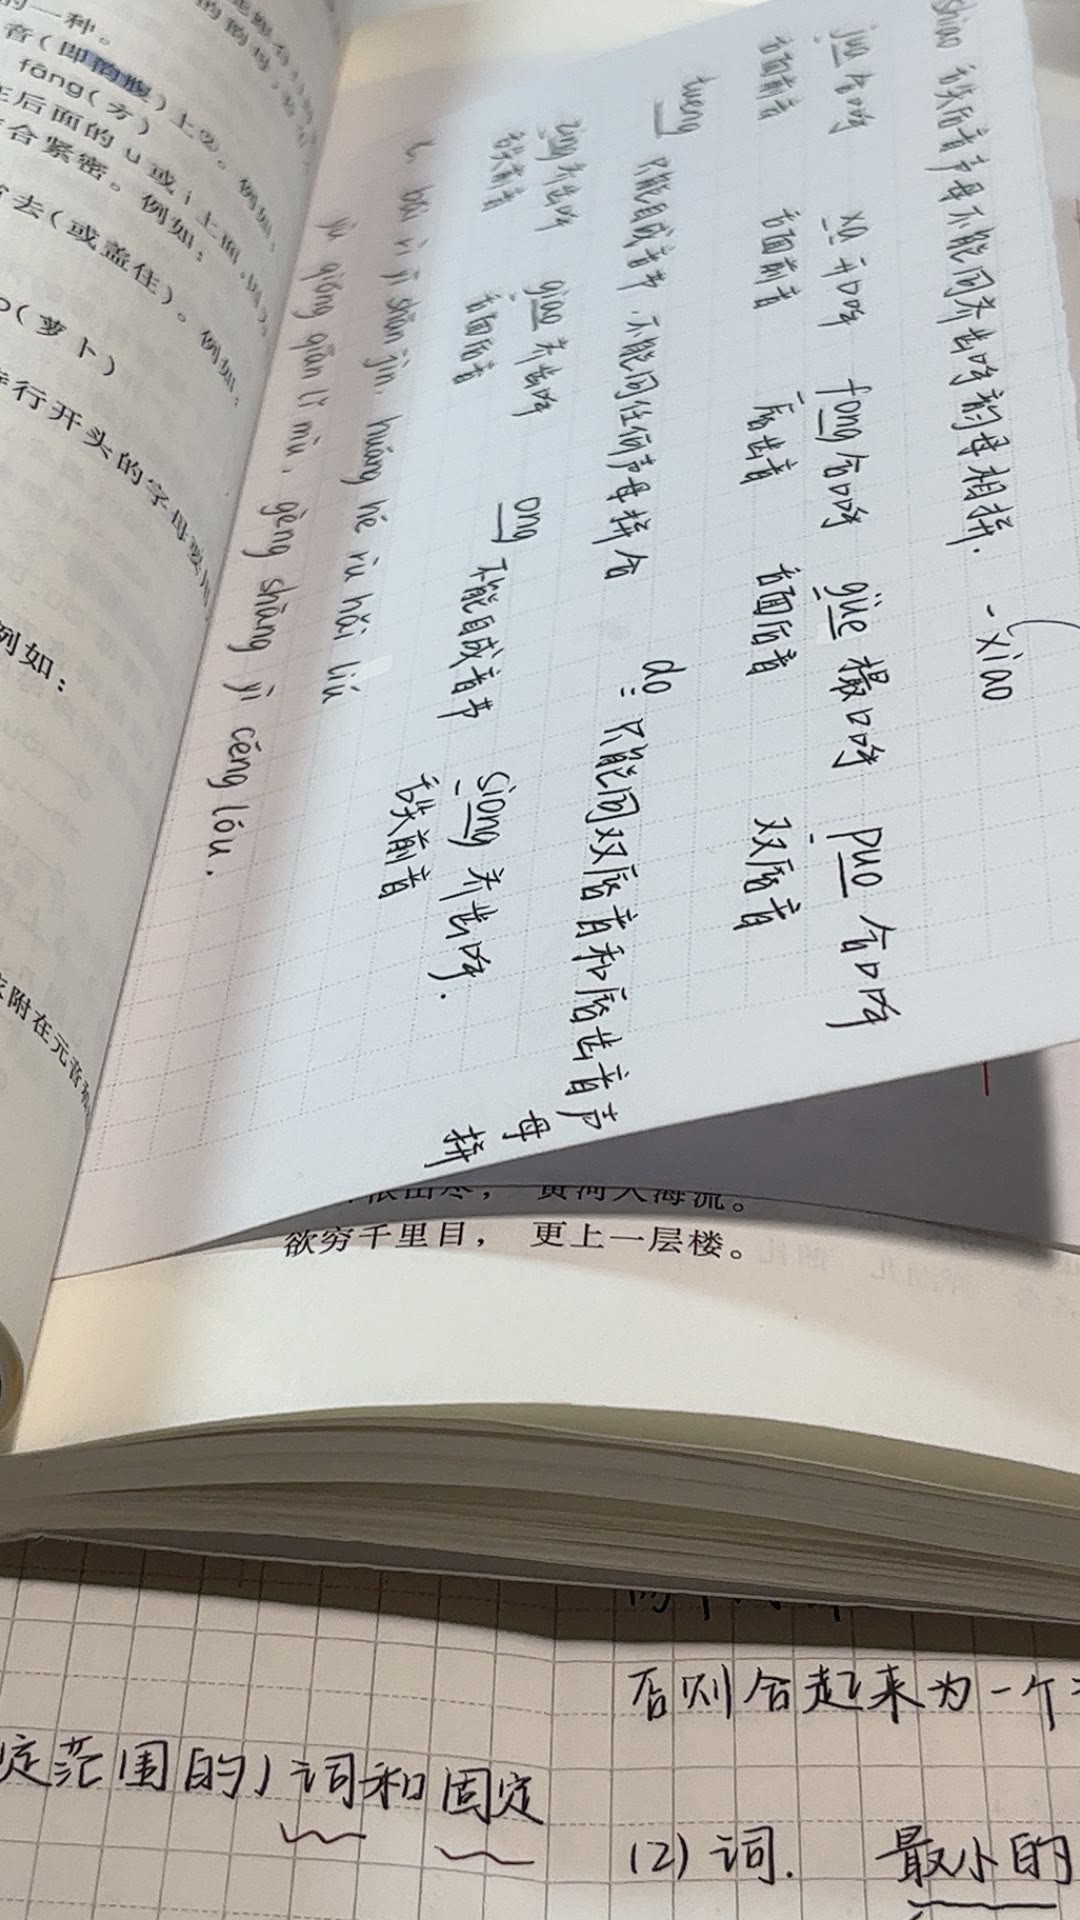 的一种。
音(即韵腹)上②。例如:
fāng(方)
在后面的 u 或 i 上面
合紧密。例如:
去(或盖住)。例如:
o(萝卜)
行开头的字母要用
例如:
附在元音和
shiao 舌尖后音声母不能同齐齿呼韵母相拼. - xiao
舌面前音
xa 开口呼
舌面前音
fong 合口呼
唇齿音
güe 撮口呼
舌面后音
puo 合口呼
双唇音
tueng 只能自成音节,不能同任何声母拼合
do 只能同双唇音和唇齿音声母拼
zing 齐齿呼
舌尖前音
giao 齐齿呼
舌面后音
ong 不能自成音节
siong 齐齿呼.
舌尖前音
bái rì yī shān jìn, huáng hé rù hǎi liú
yù qióng qiān lǐ mù, gèng shàng yì céng lóu.
依山尽, 黄河入海流。
欲穷千里目, 更上一层楼。
否则合起来为一个
定范围的)词和固定
(2) 词. 最小的